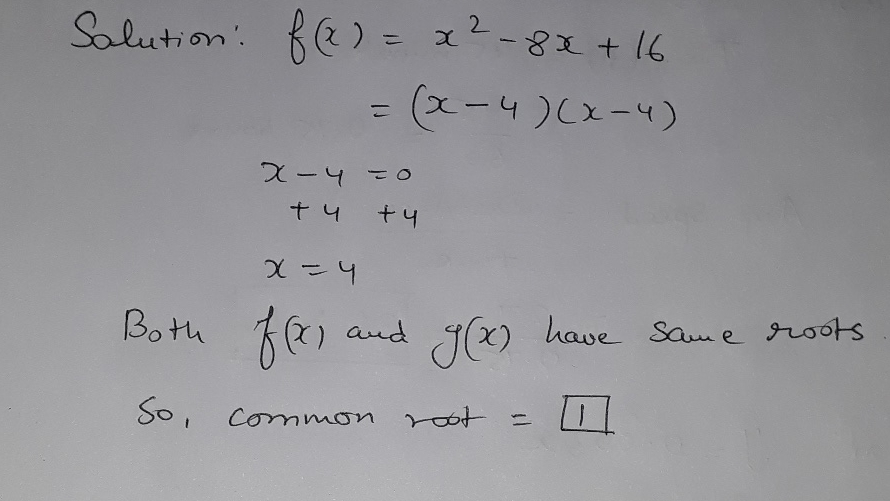 Solution: f(x) = x² - 8x + 16
= (x-4)(x-4)
x - 4 = 0
+4 +4
x = 4
Both f(x) and g(x) have same roots.
So, common root = 1